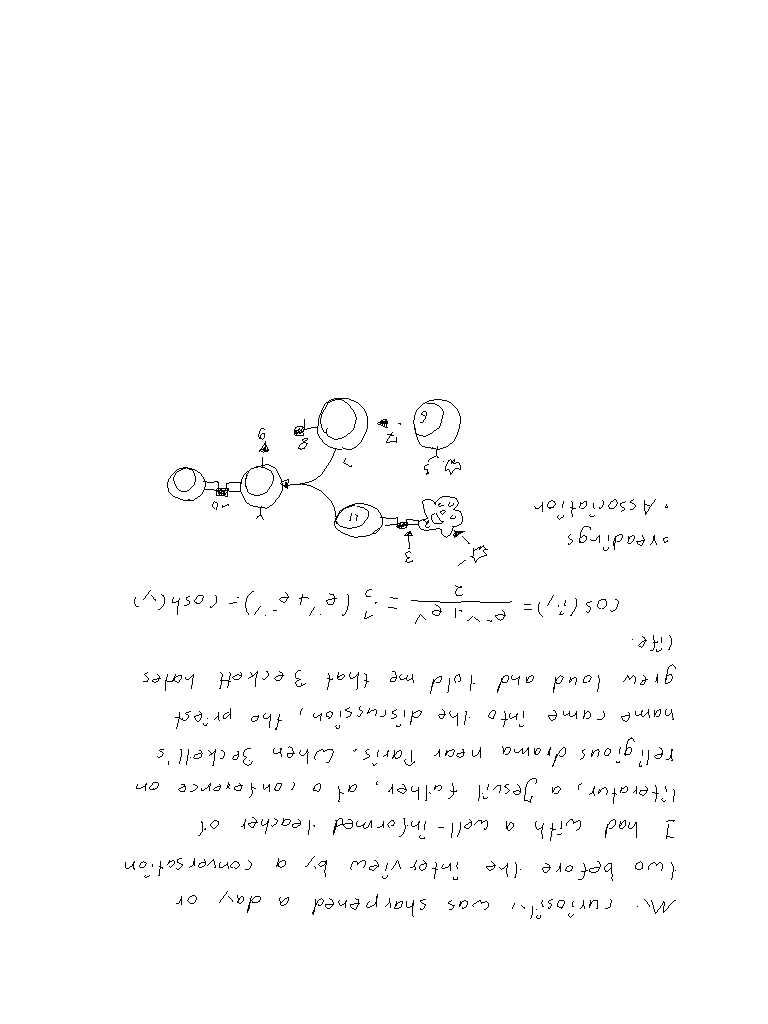 My curiosity was sharpened a day or
two before the interview by a conversation
I had with a well-informed teacher of
literatur, a Jesuit father, at a conference on
religious drama near Paris. When Beckett's
name came into the discussion, the priest
grew loud and told me that Beckett hates
life.
cos(iy) = 
2
= cosh(y)
•readings
• Association
3
11
10
9
5
6
7
8